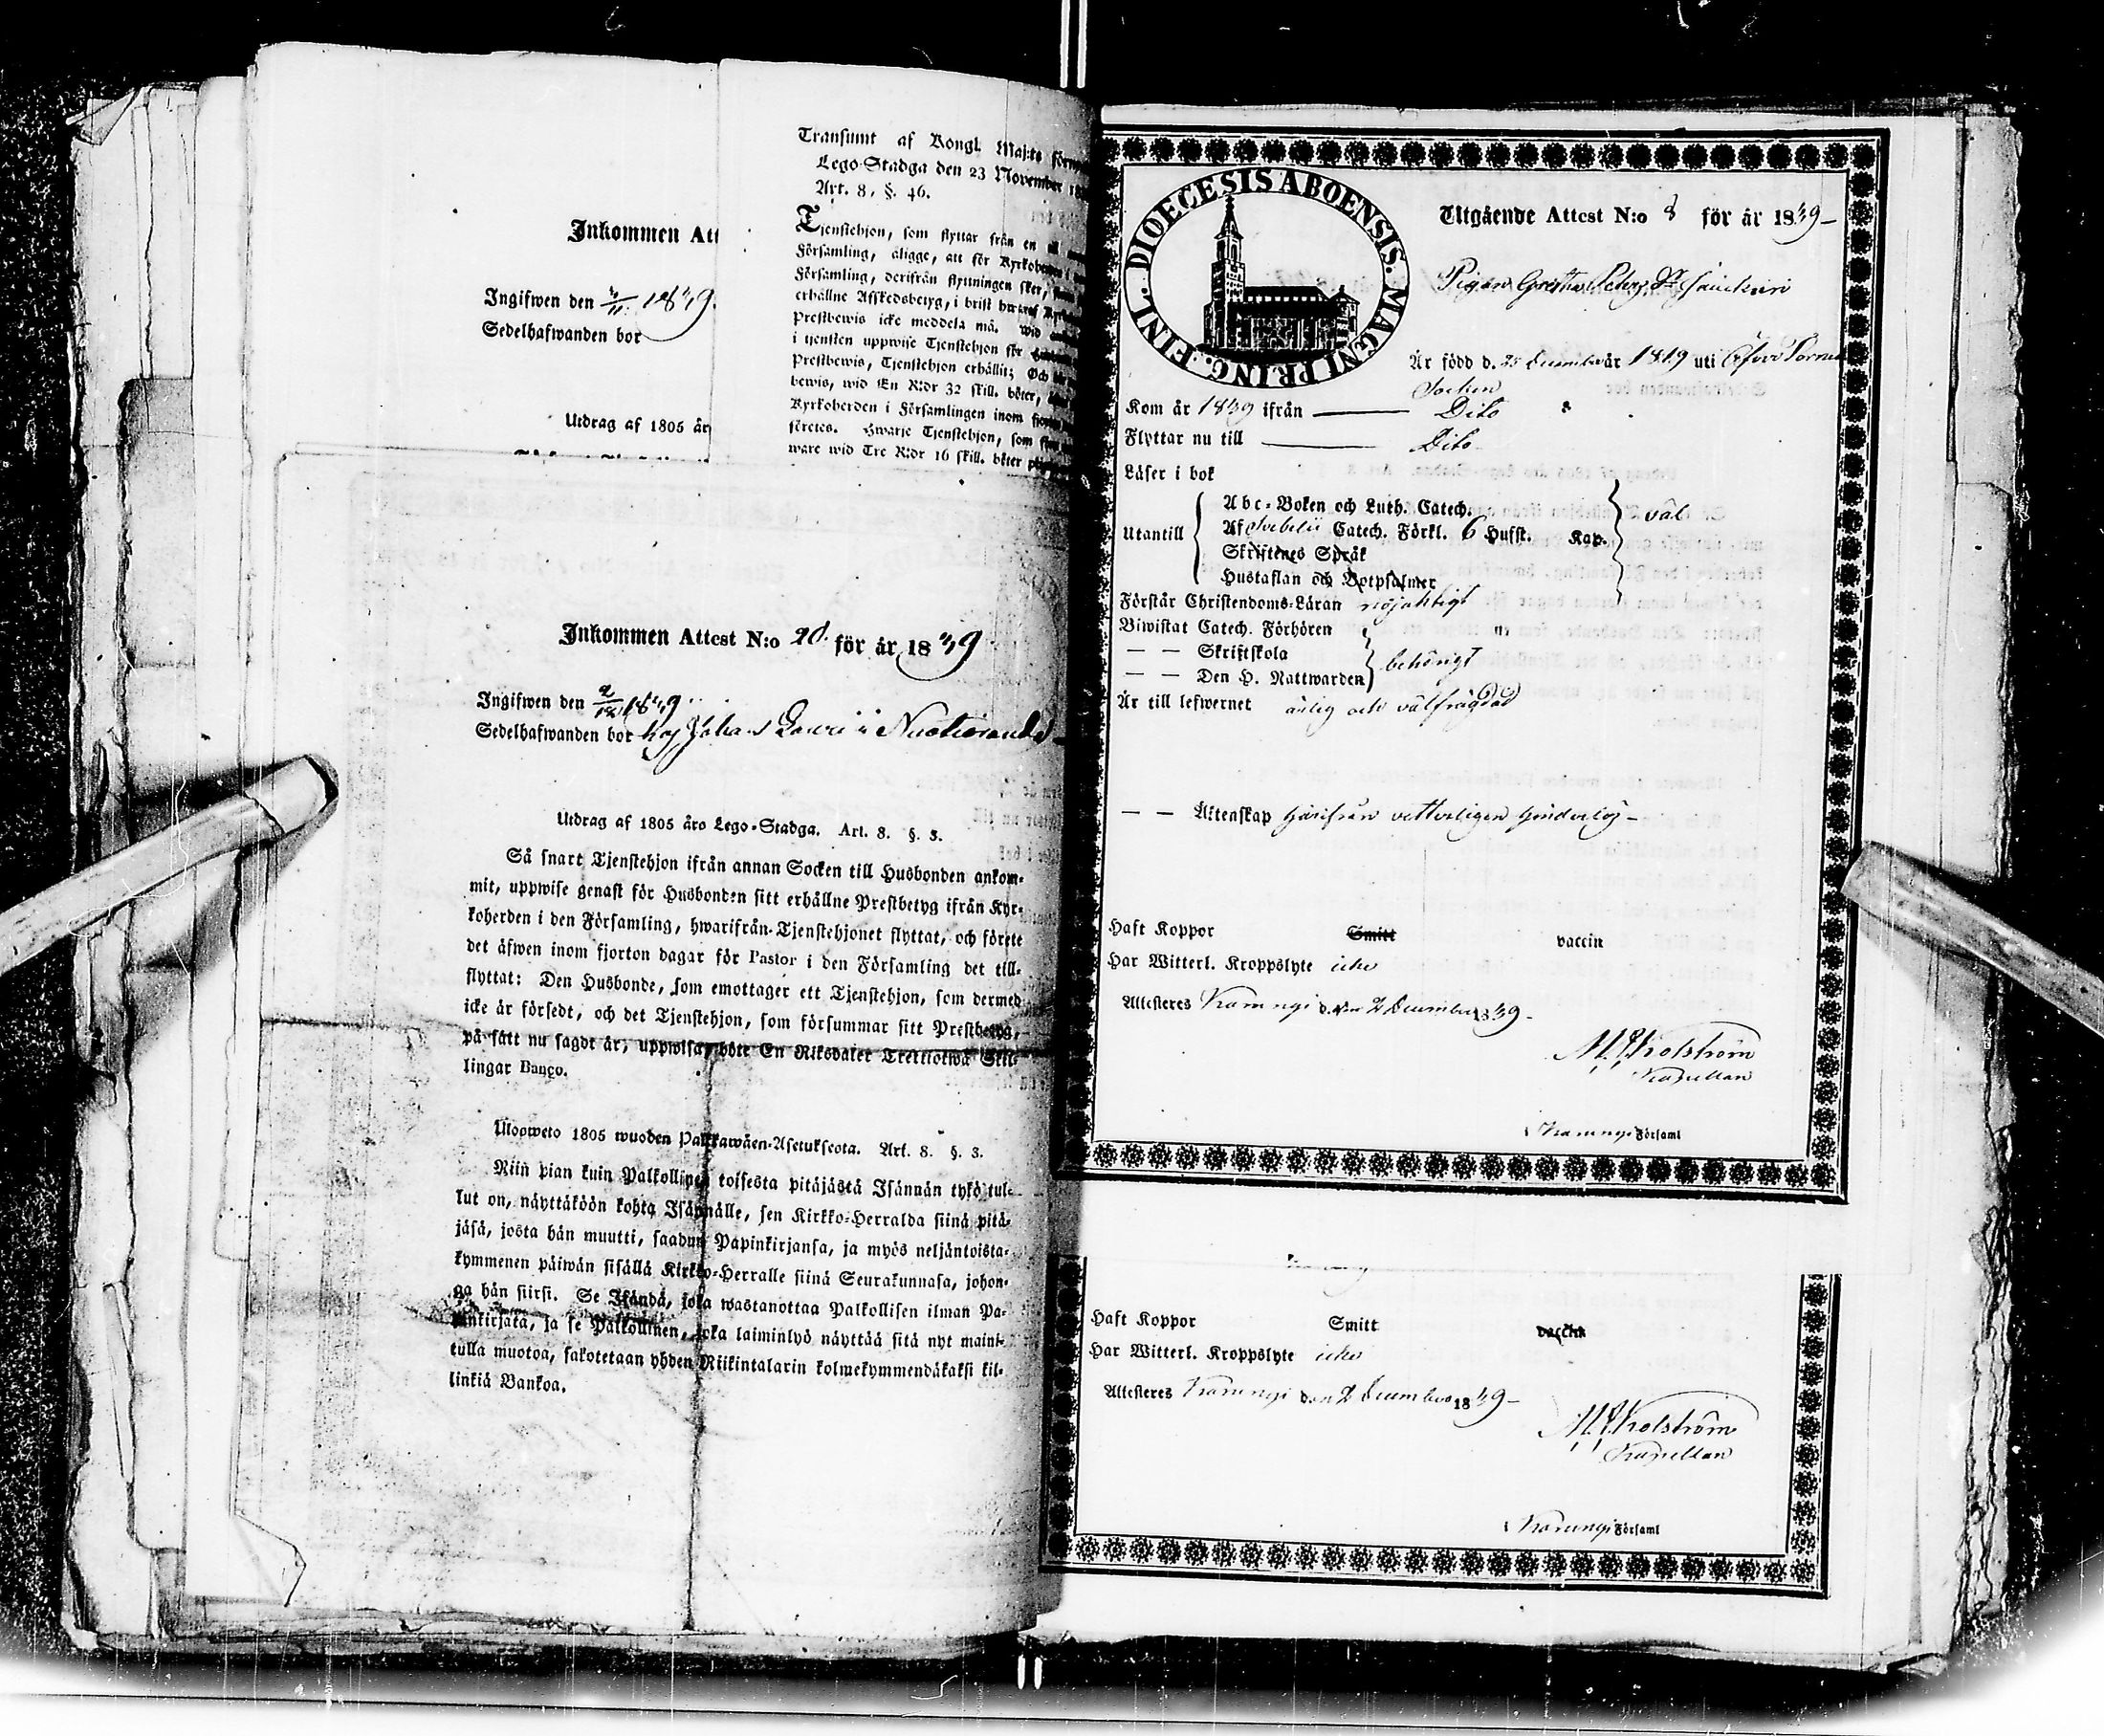 Transumt af Kongl. Maj:ts
Lego-Stadga den 23 November
Art. 8, §. 46.
Tjenstehjon, som flyttar från en
Församling, åligge, att för
Församling, derifrån flyttningen sker,
erhållne Afskedsbetyg, i brist hwaraf
Prestbewis icke meddela må. Wid
i tjensten uppwise Tjenstehjon för
Prestbewis, Tjenstehjon erhållit; Och
bewis, wid En R:dr 32 skill. böter,
Kyrkoherden i Församlingen inom
företes. Hwarje Tjenstehjon, som
ware wid Tre R:dr 16 skill. böter
Inkommen Att
Ingifwen den 1839.
Sedelhafwanden bor
Utdrag af 1805 år
Inkommen Attest N:o 20. för år 1839
Ingifwen den 2/12 1839.
Sedelhafwanden bor hos Joha
Utdrag af 1805 års Lego-Stadga. Art. 8. §. 3.
Så snart Tjenstehjon ifrån annan Socken till Husbonden ankom-
mit, uppwise genast för Husbonden sitt erhållne Prestbetyg ifrån Kyr-
koherden i den Församling, hwarifrån Tjenstehjonet flyttat, och förete
det äfwen inom fjorton dagar för Pastor i den Församling det till-
flyttat: Den Husbonde, som emottager ett Tjenstehjon, som dermed
icke är försedt, och det Tjenstehjon, som försummar sitt Prestbetyg,
på sätt nu sagdt är, uppwisa, böte En Riksdaler Trettiotwå Skil-
lingar Banco.
Ulosweto 1805 wuoden Palkkawäen-Asetuksesta. Art. 8. §. 3.
Niin pian kuin Palkollinen toisesta pitäjästä Isännän tykö tul-
lut on, näyttäköön kohta Isännälle, sen Kirkko-Herralda siinä pitä-
jäsä, josta hän muutti, saadun Papinkirjansa, ja myös neljäntoista-
kymmenen päiwän sisällä Kirkko-Herralle siinä Seurakunnasa, johon-
ga hän siirsi. Se Isändä, joka wastanottaa Palkollisen ilman Pa-
pinkirjata, ja se Palkollinen, joka laiminlyö näyttää sitä nyt maini-
tulla muotoa, sakotetaan yhden Riikintalarin kolmekymmendäkaksi kil-
linkiä Bankoa.
DIOECESIS ABOENSIS. MAGNI PRINC. FINL.
Utgående Attest N:o 8 för år 1839
Pigan Gretha Peters Dr
Är född d. 25 December år 1819 uti Öfver Torneå
Socken
Kom år 1839 ifrån Dito
Flyttar nu till Dito
Läser i bok
Utantill
Abc-Boken och Luth. Catech.
Af Svebelii Catech. Förkl. 6 Hufst. Kap.
Skriftenes Språk
Hustaflan och Botpsalmer
väl
Förstår Christendoms-Läran nöjaktigt
Biwistat Catech. Förhören
— — Skriftskola
— — Den H. Nattwarden
behörigt
Är till lefwernet ärlig och välfrägdad
— — Äktenskap härifrån vetterligen hinderlös
Haft Koppor Smitt vaccin
Har Witterl. Kroppslyte icke
Attesteres Karungi d. den 2 December 1839
Kapellan
Karungi Församl
Haft Koppor Smitt vaccin
Har Witterl. Kroppslyte icke
Attesteres Karungi den 2 December 1839
Kapellan
Karungi Församl